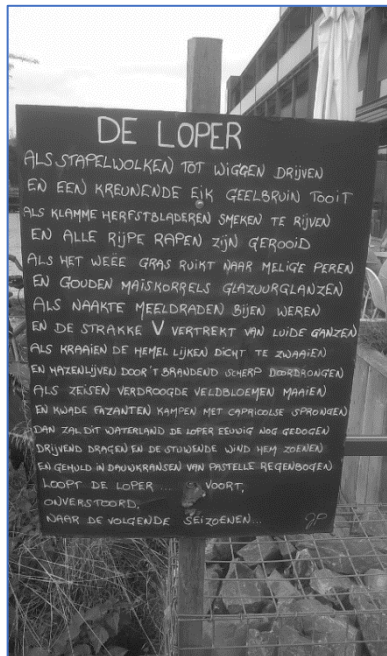 DE LOPER
ALS STAPELWOLKEN TOT WIGGEN DRIJVEN
EN EEN KREUNENDE EIK GEELBRUIN TOOIT
ALS KLAMME HERFSTBLADEREN SMEKEN TE RIJVEN
EN ALLE RIJPE RAPEN ZIJN GEROOID
ALS HET WEEË GRAS RUIKT NAAR MELIGE PEREN
EN GOUDEN MAÏSKORRELS GLAZUURGLANZEN
ALS NAAKTE MEELDRADEN BIJEN WEREN
EN DE STRAKKE V VERTREKT VAN LUIDE GANZEN
ALS KRAAIEN DE HEMEL LIJKEN DICHT TE ZWAAIEN
EN HAZENLIJVEN DOOR'T BRANDEND SCHERP DOORDRONGEN
ALS ZEISEN VERDROOGDE VELDBLOEMEN MAAIEN
EN KWADE FAZANTEN KAMPEN MET CAPRIOLSE SPRONGEN
DAN ZAL DIT WATERLAND DE LOPER EEUWIG NOG GEDOGEN
DRIJVEND DRAGEN EN DE STUWENDE WIND HEM ZOENEN
EN GEHULD IN DAUWKRANSEN VAN PASTELLE REGENBOGEN
LOOPT DE LOPER ... VOORT,
ONVERSTOORD,
NAAR DE VOLGENDE SEIZOENEN...
JP